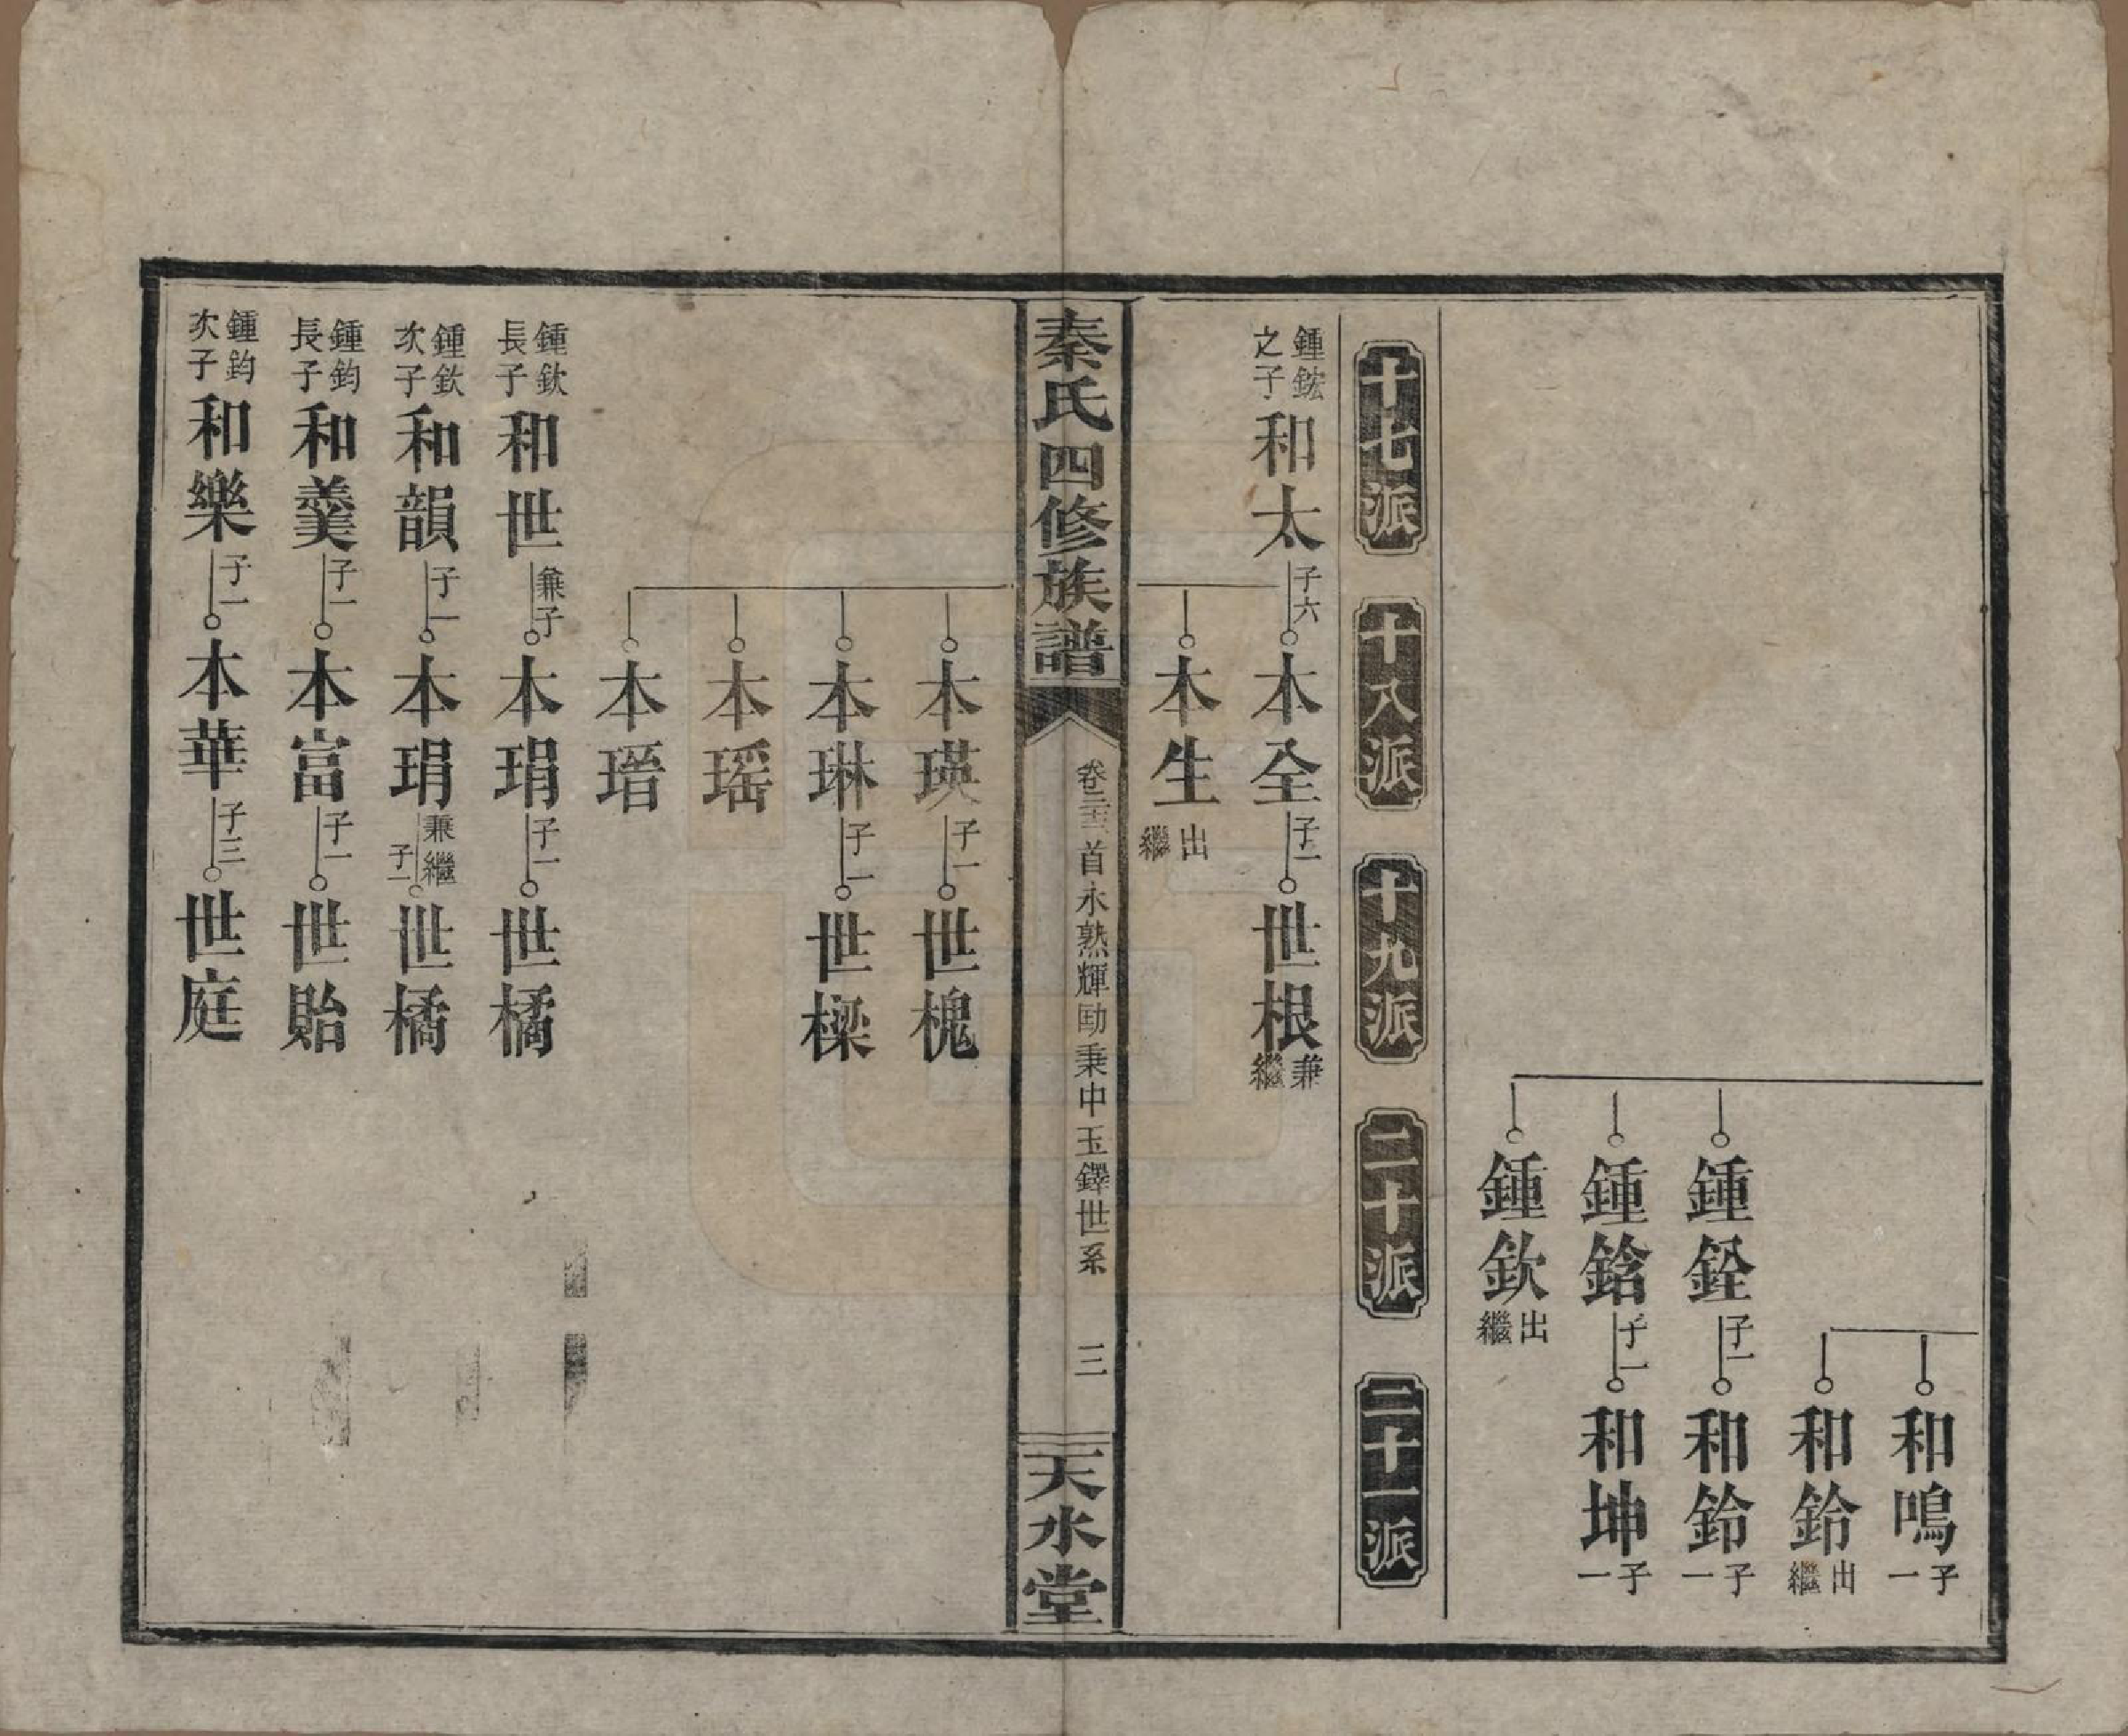 和鳴 子一
和鈴 出繼
鍾銓 子一 和鈴 子一
鍾鋡 子一 和坤 子一
鍾欽 出繼
十七派 十八派 十九派 二十派 二十一派
鍾鋐之子 和太 子六 本全 子一 世根 兼繼
本生 出繼
秦氏四修族譜
首永熟輝勖秉中玉鐸世系 三
天水堂
本瑛 子一 世槐
本琳 子一 世樑
本瑶
本瑨
鍾欽長子 和世 兼子 本琄 子一 世橘
鍾欽次子 和韻 子一 本琄 兼繼子一 世橘
鍾鈞長子 和羹 子一 本富 子一 世貽
鍾鈞次子 和樂 子一 本華 子三 世庭